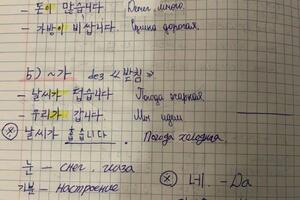 - 돈이 많습니다 Денег много.
- 가방이 비쌉니다. Сумка дорогая.
5) ~가 без «받침»
- 날씨가 덥습니다 Погода жаркая.
- 우리가 갑니다. Мы идем
⊗ 날씨가 춥습니다. Погода холодная
눈 — снег, глаза
기분 — настроение
⊗ 네. - Да